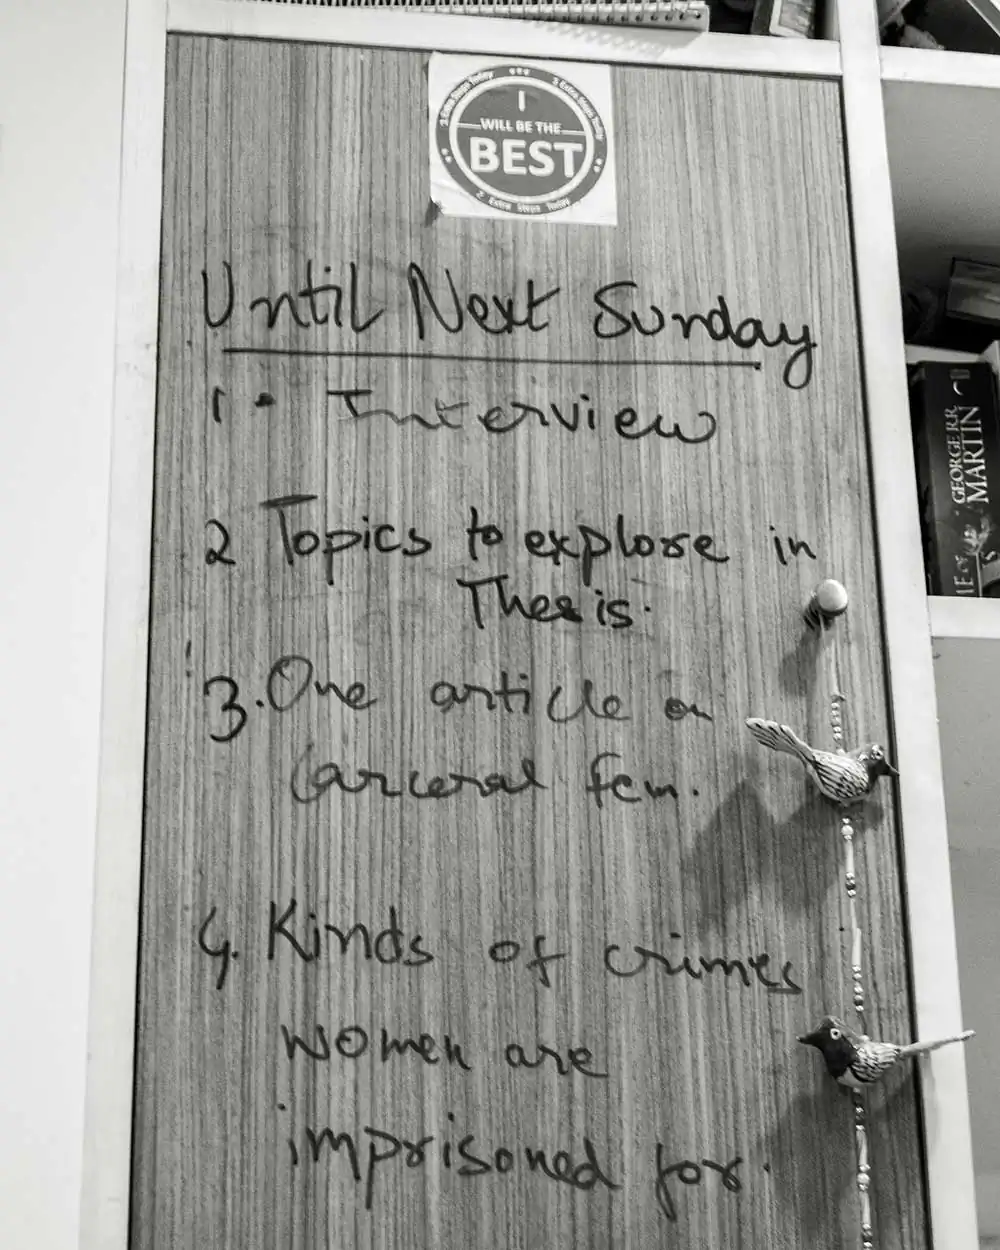 3 Extra Steps Today
3 Extra Steps Today
I
WILL BE THE
BEST
2 Extra Steps Today
Until Next Sunday
1. Interview
2 Topics to explore in
Thesis.
3. One article on
Carceral fem.
4. Kinds of crimes
women are
imprisoned for.
GEORGE R.R.
MARTIN